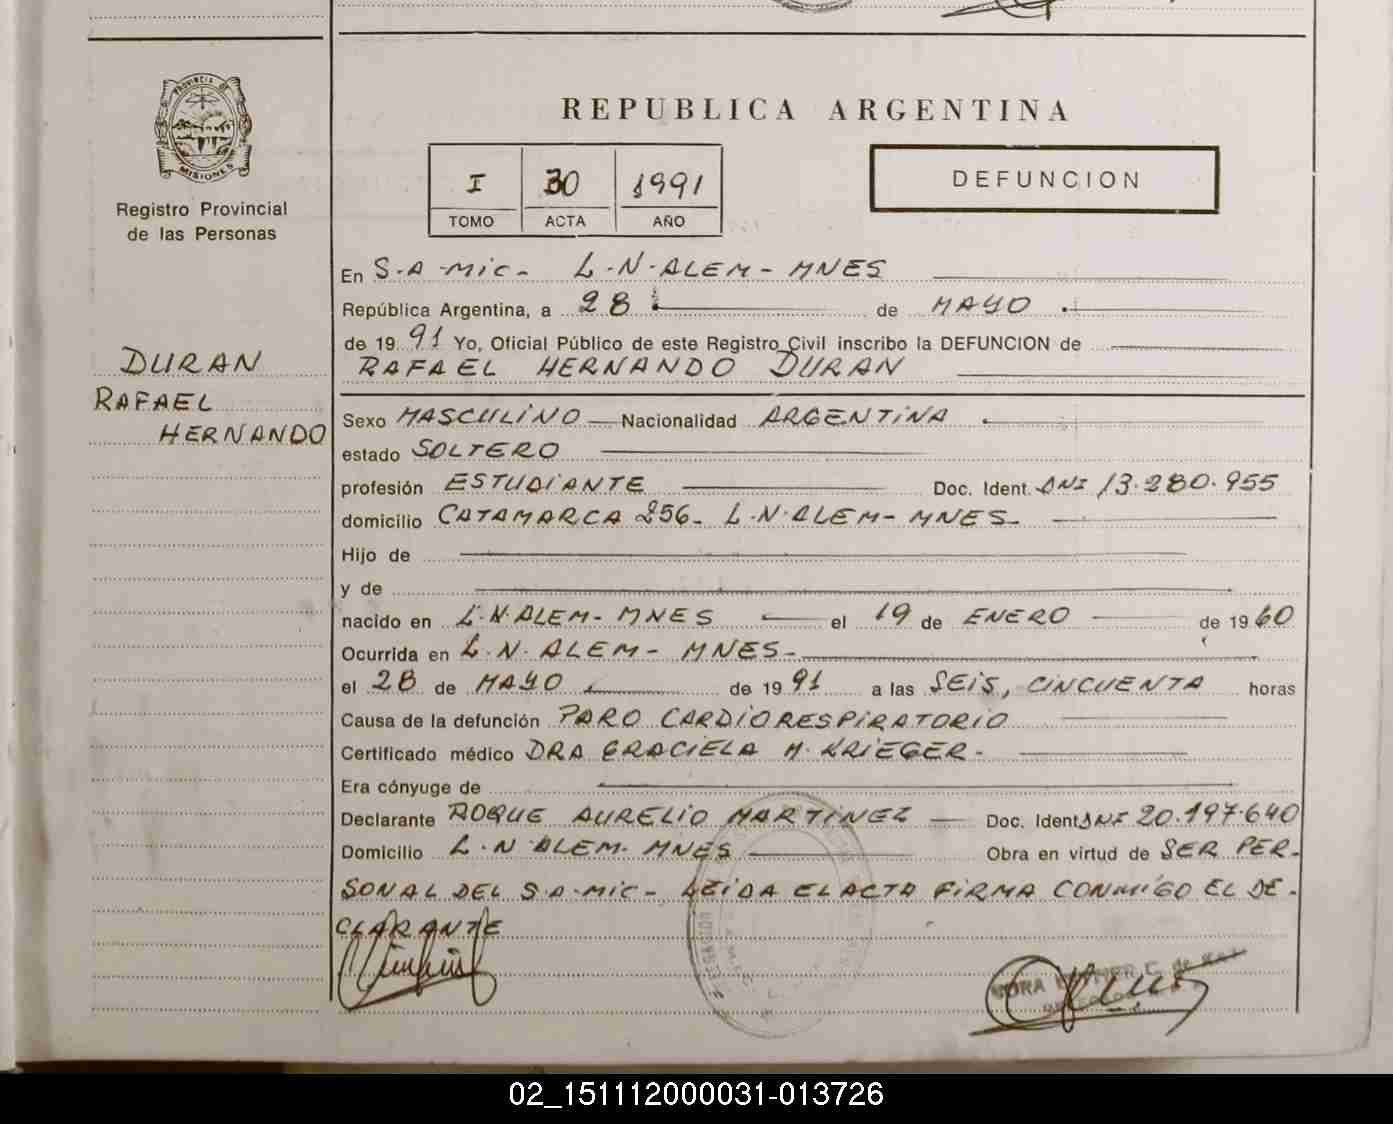 PROVINCIA DE
MISIONES
Registro Provincial
de las Personas
DURAN
RAFAEL
HERNANDO
REPUBLICA ARGENTINA
I 30 1991
TOMO ACTA AÑO
DEFUNCION
En S.A.MIC- L.N.ALEM-MNES
República Argentina, a 28 de MAYO
de 1991 Yo, Oficial Público de este Registro Civil inscribo la DEFUNCION de
RAFAEL HERNANDO DURAN
Sexo MASCULINO Nacionalidad ARGENTINA
estado SOLTERO
profesión ESTUDIANTE Doc. Ident. DNI 13.280.955
domicilio CATAMARCA 256- L.N.ALEM-MNES-
Hijo de
y de
nacido en L.N.ALEM-MNES el 19 de ENERO de 1960
Ocurrida en L.N.ALEM-MNES-
el 28 de MAYO de 1991 a las SEIS, CINCUENTA horas
Causa de la defunción PARO CARDIORESPIRATORIO
Certificado médico DRA GRACIELA M. KRIEGER-
Era cónyuge de
Declarante ROQUE AURELIO MARTINEZ Doc. Ident DNI 20.197.640
Domicilio L.N ALEM-MNES Obra en virtud de SER PER-
SONAL DEL S.A.MIC- LEIDA EL ACTA FIRMA CONMIGO EL DE-
CLARANTE
02_151112000031-013726